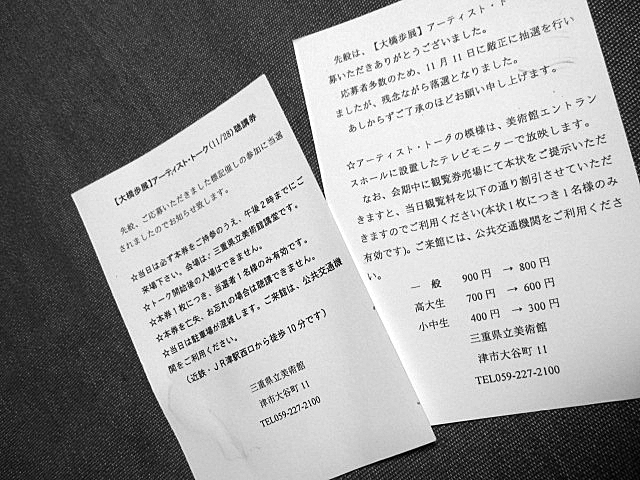 【大橋歩展】アーティスト・トーク(11/28)聴講券
先般、ご応募いただきました標記催しの参加に当選
されましたのでお知らせ致します。
☆当日は必ず本券をご持参のうえ、午後2時までにご
来場下さい。会場は、三重県立美術館講堂です。
☆トーク開始後の入場はできません。
☆本券1枚につき、当選者1名様のみ有効です。
☆本券を亡失、お忘れの場合は聴講できません。
☆当日は駐車場が混雑します。ご来館は、公共交通機
関をご利用ください。
(近鉄・JR津駅西口から徒歩10分です)
三重県立美術館
津市大谷町11
TEL059-227-2100
先般は、【大橋歩展】アーティスト・ト
募いただきありがとうございました。
応募者多数のため、11月11日に厳正に抽選を行い
ましたが、残念ながら落選となりました。
あしからずご了承のほどお願い申し上げます。
☆アーティスト・トークの模様は、美術館エントラン
スホールに設置したテレビモニターで放映します。
なお、会期中に観覧券売場にて本状をご提示いただ
きますと、当日観覧料を以下の通り割引させていただ
きますのでご利用ください(本状1枚につき1名様のみ
有効です)。ご来館には、公共交通機関をご利用くださ
い。
一 般 900円 → 800円
高大生 700円 → 600円
小中生 400円 → 300円
三重県立美術館
津市大谷町11
TEL059-227-2100